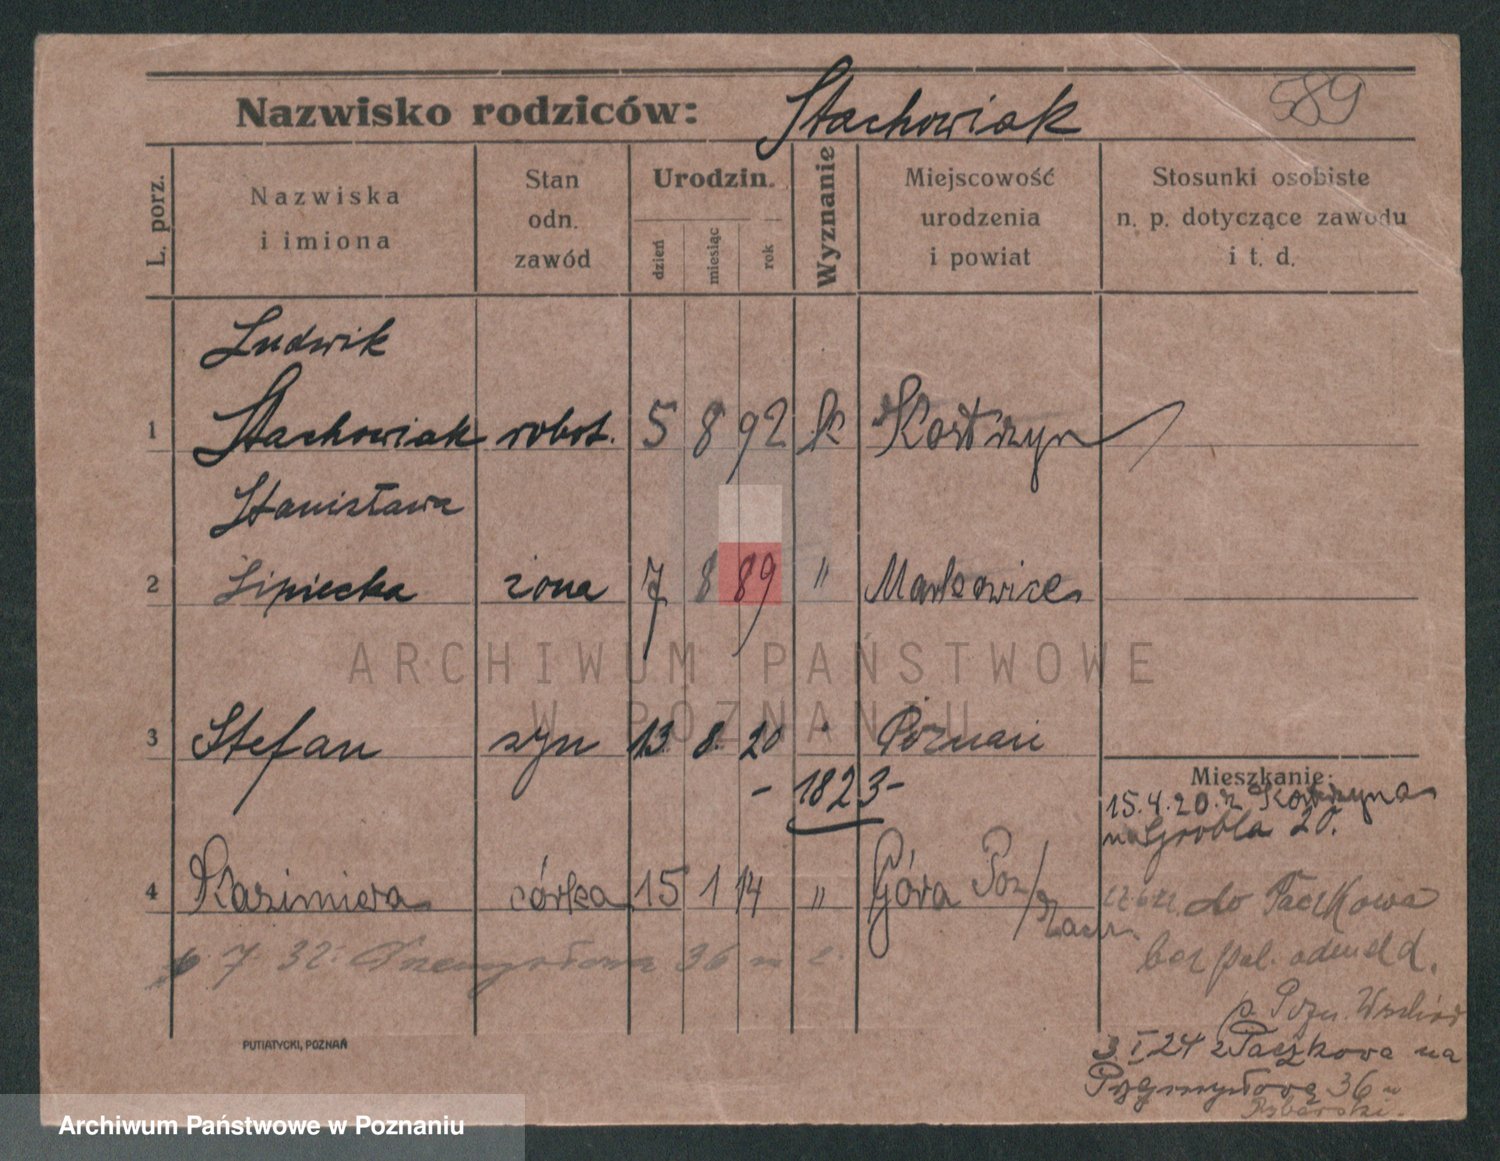 Nazwisko rodziców: Stachowiak 589
L. porz.
Nazwiska
i imiona
Stan
odn.
zawód
Urodzin.
dzień
miesiąc
rok
Wyznanie
Miejscowość
urodzenia
i powiat
Stosunki osobiste
n. p. dotyczące zawodu
i t. d.
Ludwik
1 Stachowiak robot. 5 8 92 k Kostrzyn
Stanisława
2 Lipiecka żona 7 8 89 " Markowice
ARCHIWUM PAŃSTWOWE
W POZNANIU
3 Stefan syn 13. 8. 20 " Poznań
- 1823 -
Mieszkanie:
15.4.20. z Kostrzyna
na Grobla 20.
4 Kazimiera córka 15 1 14 " Góra Poz/
do Paczkowa
7. 32. Przemysłowa 36
bez pol. odmeld.
p. Pozn. Wschód
3 I 24 z Paczkowa na
Przemysłową 36
PUTIATYCKI, POZNAŃ
Archiwum Państwowe w Poznaniu